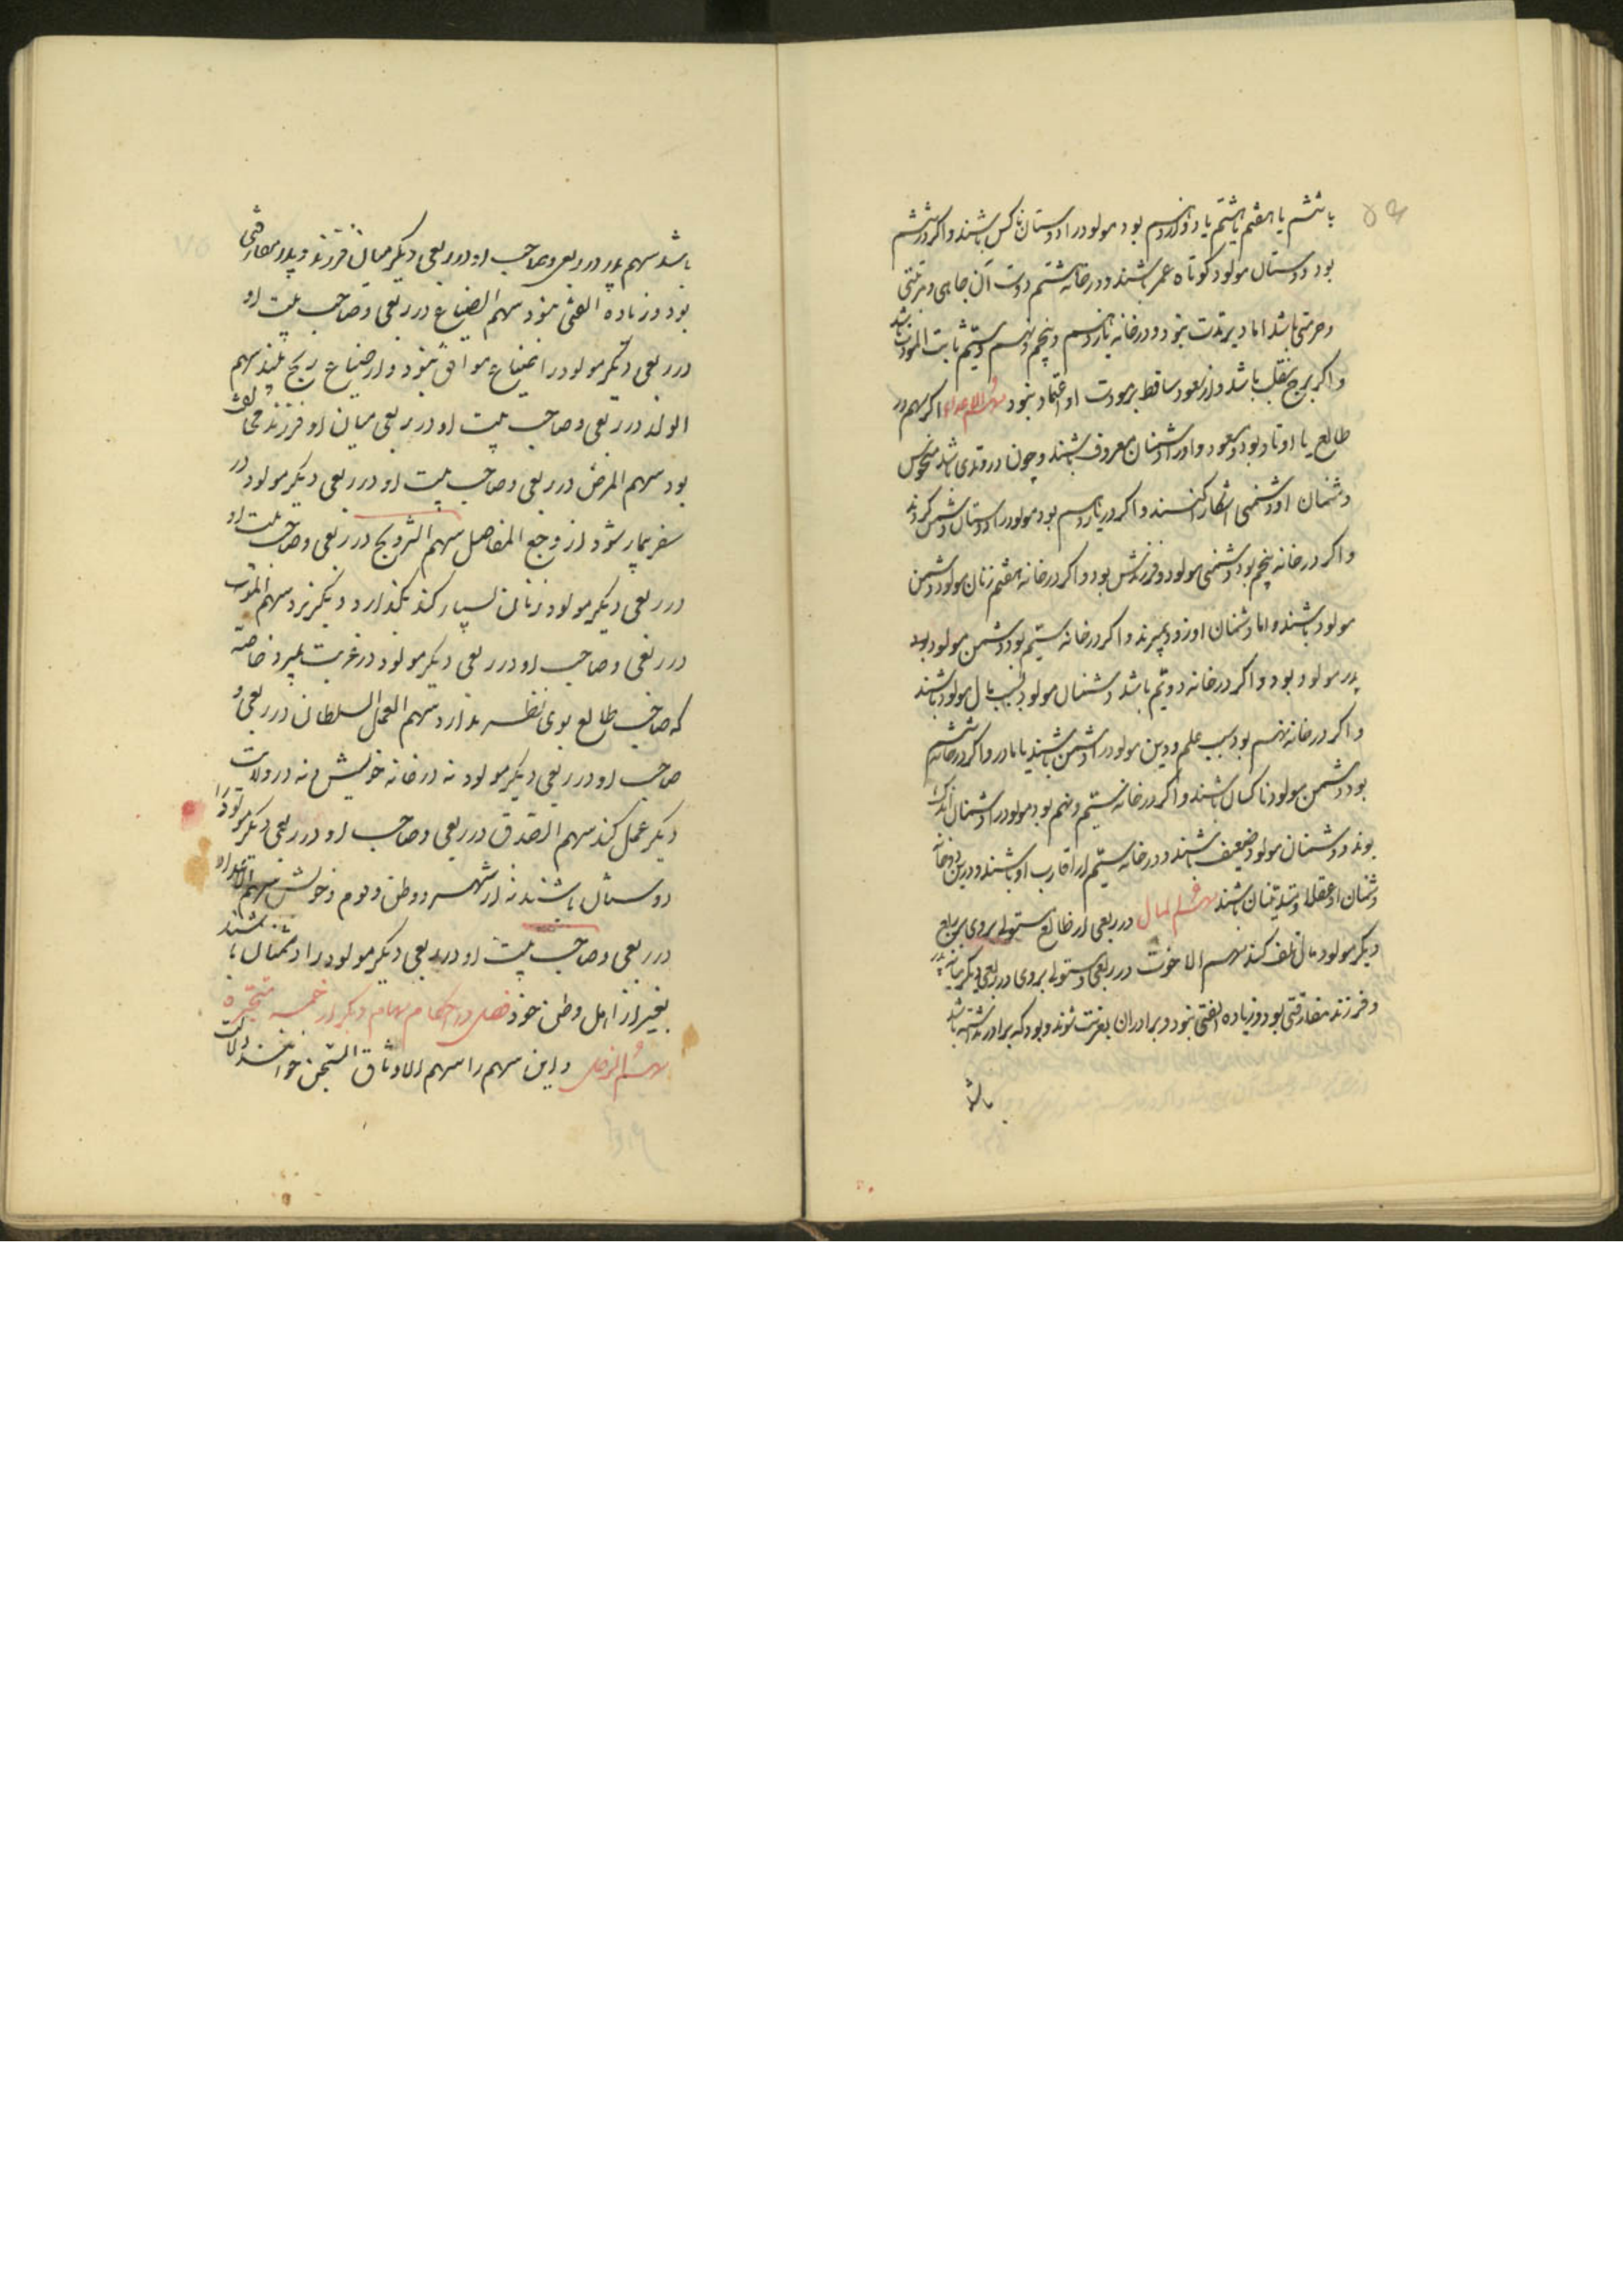 یا ششم یا هفتم یا هشتم یا دوازدهم بود مولود را دوستان ناکس باشند و اگر در ششم
بود دوستان مولود کوتاه عمر باشند و در خانه هشتم دوست آن جاهی و مرتبتی
و حرمتی باشد اما دیر مدت نبود و در خانه یازدهم و پنجم و نهم و سیّم ثابت المودت باشد
و اگر برج منقلب باشد و از سعود ساقط بر مودت او اعتماد نبود سهم الاعداء اگر سهم در
طالع یا اوتاد بود و سعود و او را دشمنان معروف باشند و چون در وتدی باشد منحوس
دشمنان او دشمنی آشکارا کنند و اگر در یازدهم بود مولود را دوستان دشمن گردند
و اگر در خانه پنجم بود دشمنی مولود و فرزندش بود و اگر در خانه هفتم زنان مولود دشمن
مولود باشند و اما دشمنان او زود بمیرند و اگر در خانه سیّم بود دشمن مولود بود
پدر مولود بود و اگر در خانه دویّم باشد دشمنان مولود بسبب مال مولود باشند
و اگر در خانه نهم بود بسبب علم و دین مولود را دشمن باشند یا مادر و اگر در خانه ششم
بود دشمن مولود ناکسان باشند و اگر در خانه سیّم و نهم بود مولود را دشمنان اندک
بوند و دشمنان مولود ضعیف باشند و در خانه سیّم از اقارب او باشند و درین دو خانه
دشمنان او عقلا و متدیّنان باشند سهم المال در ربعی از طالع مستولی بروی بر ربع
دیگر مولود مال تلف کند سهم الاخوت در ربعی و مستولی بروی در ربعی دیگر میانه پدر
و فرزند مفارقتی بود و زیاده الفتی نبود و برادران بغربت شوند و بود که برادر نداشته باشد
باشد
باشد سهم پدر در ربعی و صاحب او در ربعی دیگر میان فرزند و پدر مفارقتی
بود و زیاده الفتی نبود سهم الضیاع در ربعی و صاحب بیت او
در ربعی دیگر مولود را ضیاع موافق نبود و از ضیاع رنج بیند سهم
الولد در ربعی و صاحب بیت او در ربعی میان او و فرزند مخالفت
بود سهم المرض در ربعی و صاحب بیت او در ربعی دیگر مولود در
سفر بیمار شود از وجع المفاصل سهم التزویج در ربعی و صاحب بیت او
در ربعی دیگر مولود زنان بسیار کند بگذارد و دیگر برد سهم الموت
در ربعی و صاحب او در ربعی دیگر مولود در غربت بمیرد خاصّه
که صاحب طالع بوی نظر ندارد سهم العمل السلطان در ربعی و
صاحب او در ربعی دیگر مولود نه در خانه خویش و نه در ولایت
دیگر عمل کند سهم الصدق در ربعی و صاحب او در ربعی دیگر مولود را
دوستان باشند نه از شهر و وطن و قوم و خویش سهم الاعداء
در ربعی و صاحب بیت او در ربعی دیگر مولود را دشمنان باشند
بغیر از اهل وطن خود فصل در احکام سهام دیگر از خمسه متحیّره
سهم الزحل و این سهم را سهم الاوثاق السّجن خوانند دلالت